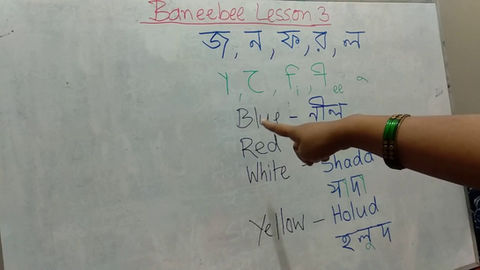 Baneebee Lesson 3
জ, ন, ফ, র, ল
Blue - নীল
Red
White - Shada
সাদা
Yellow - Holud
হলুদ